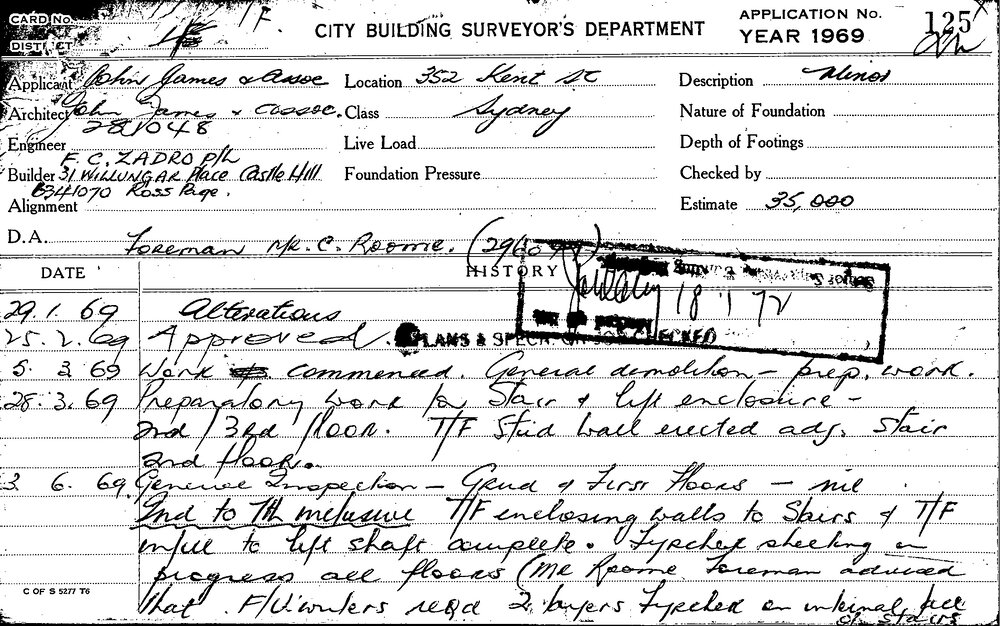 CARD No. 1F
DISTRICT
CITY BUILDING SURVEYOR'S DEPARTMENT
APPLICATION No. 125
YEAR 1969
Applicant John James & Assoc Location 352 Kent St Description Minor
Architect John James & Assoc. Class Sydney Nature of Foundation
281048
Engineer Live Load Depth of Footings
F.C. ZADRO P/L
Builder 31 WILLUNGAR Place Castle Hill Foundation Pressure Checked by
6341070 Ross Page.
Alignment Estimate 35,000
D.A. Foreman Mr. C. Roome.
DATE HISTORY
18 1 72
29.1.69 Alterations
25.2.69 Approved. PLANS & SPECN. CHECKED
5. 3 69 Work commenced. General demolition - prep. work.
28.3.69 Preparatory work for Stair & lift enclosure -
2nd / 3rd floor. T/F Stud wall erected adj. Stair
2nd floor.
3 6. 69. General Inspection - Grnd & First Floors - nil
2nd to 7th inclusive T/F enclosing walls to Stairs & T/F
infill to lift shaft complete. Fyrchek sheeting in
progress all floors (Mr Roome Foreman advised
that F/U.writers reqd 2 layers Fyrchek on internal face
of stairs
C OF S 5277 T6